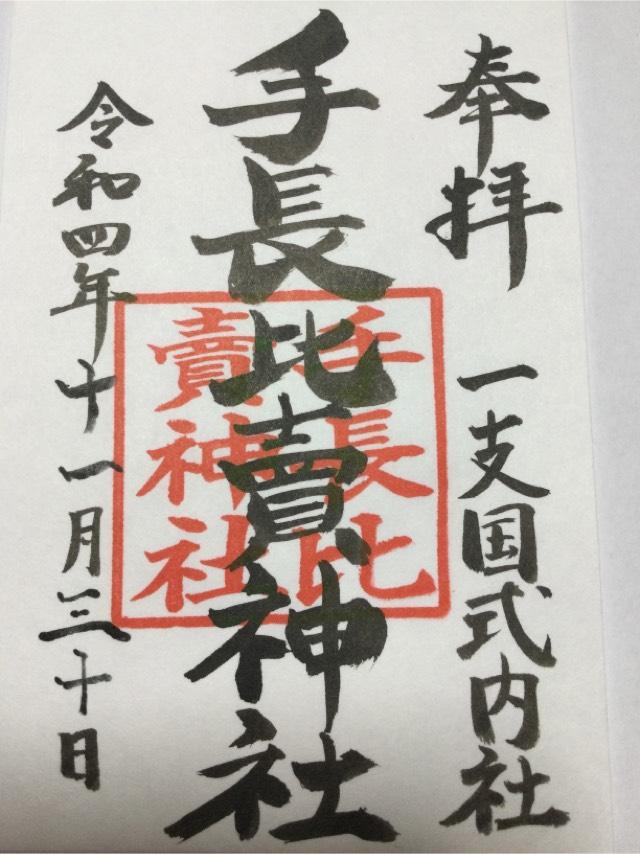 奉拝 一支国式内社
手長比賣神社
手長比
賣神社
令和四年十一月三十日